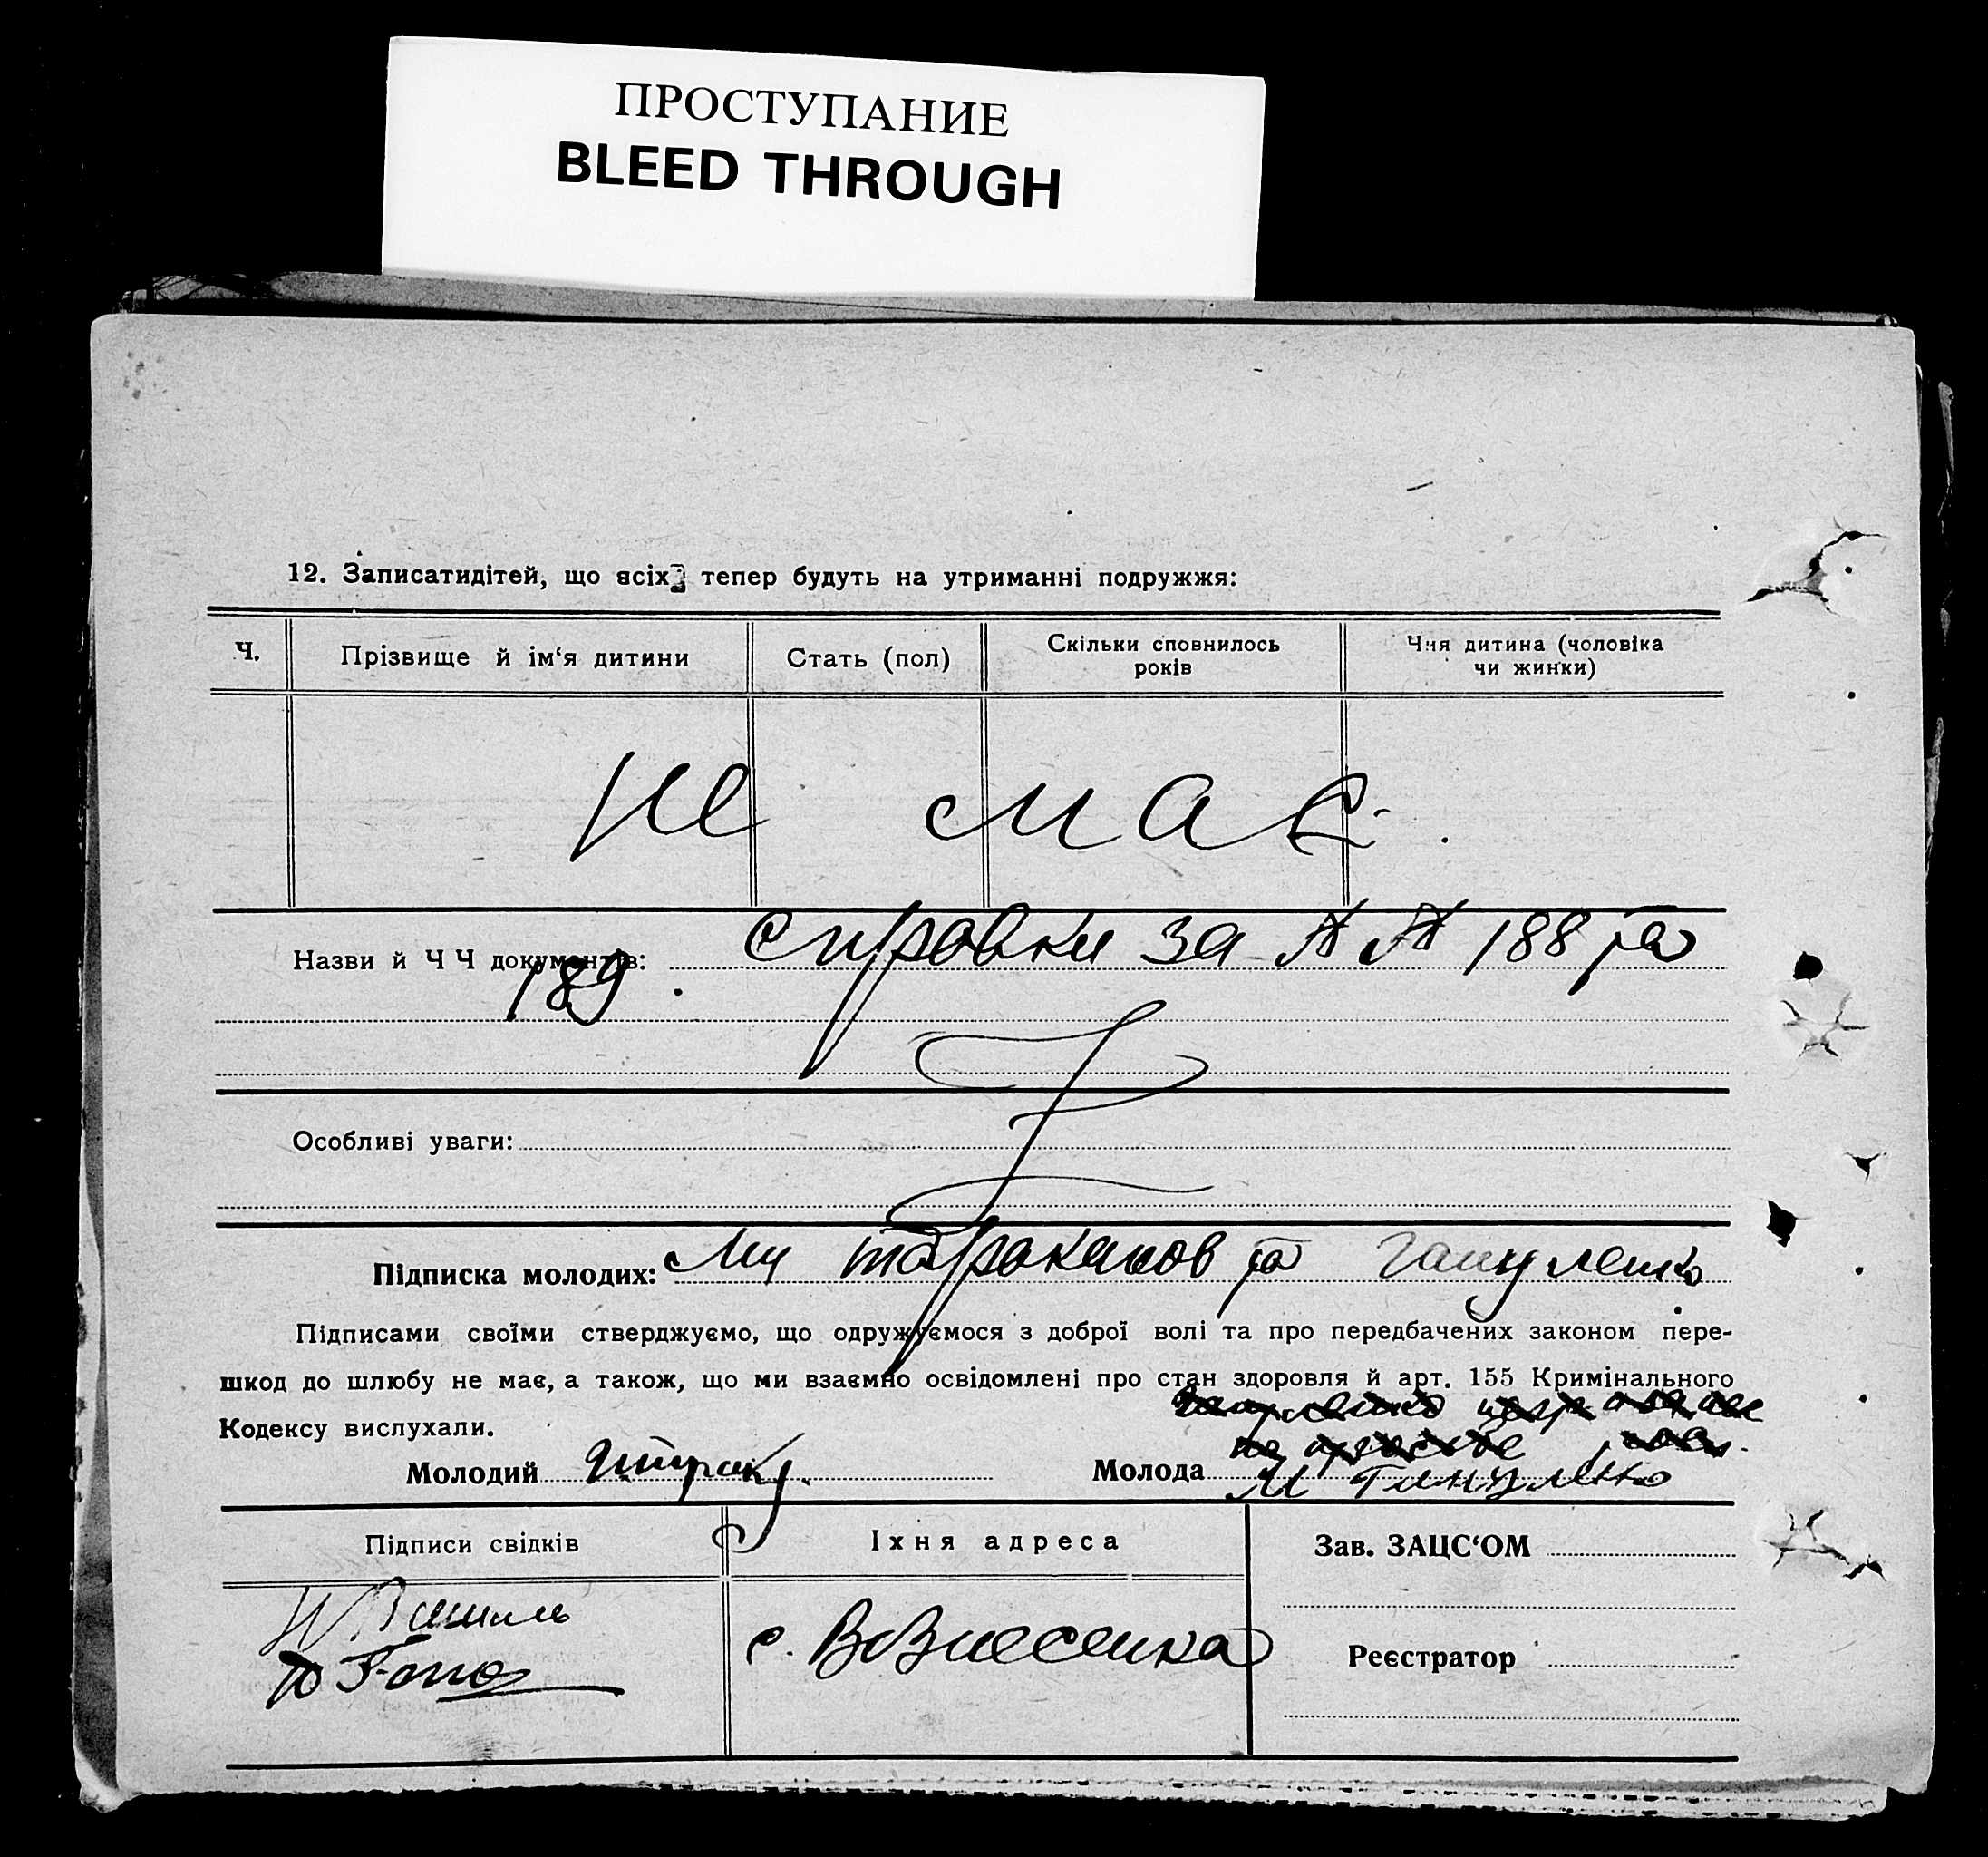 ПРОСТУПАНИЕ
BLEED THROUGH
12. Записатидітей, що всіх тепер будуть на утриманні подружжя:
Ч.
Прізвище й ім‘я дитини
Стать (пол)
Скільки сповнилось
років
Чия дитина (чоловіка
чи жинки)
не має.
Назви й Ч Ч документів: справки за №№ 188 та
189.
Особливі уваги:
Підписка молодих: Ми Тараканов та Гануленко
Підписами своїми стверджуємо, що одружуємося з доброї волі та про передбачених законом пере-
шкод до шлюбу не має, а також, що ми взаємно освідомлені про стан здоровля й арт. 155 Кримінального
Кодексу вислухали.
Молодий
Молода
Підписи свідків
Їхня адреса
Зав. ЗАЦС‘ОМ
с. Вознесенка
Реєстратор